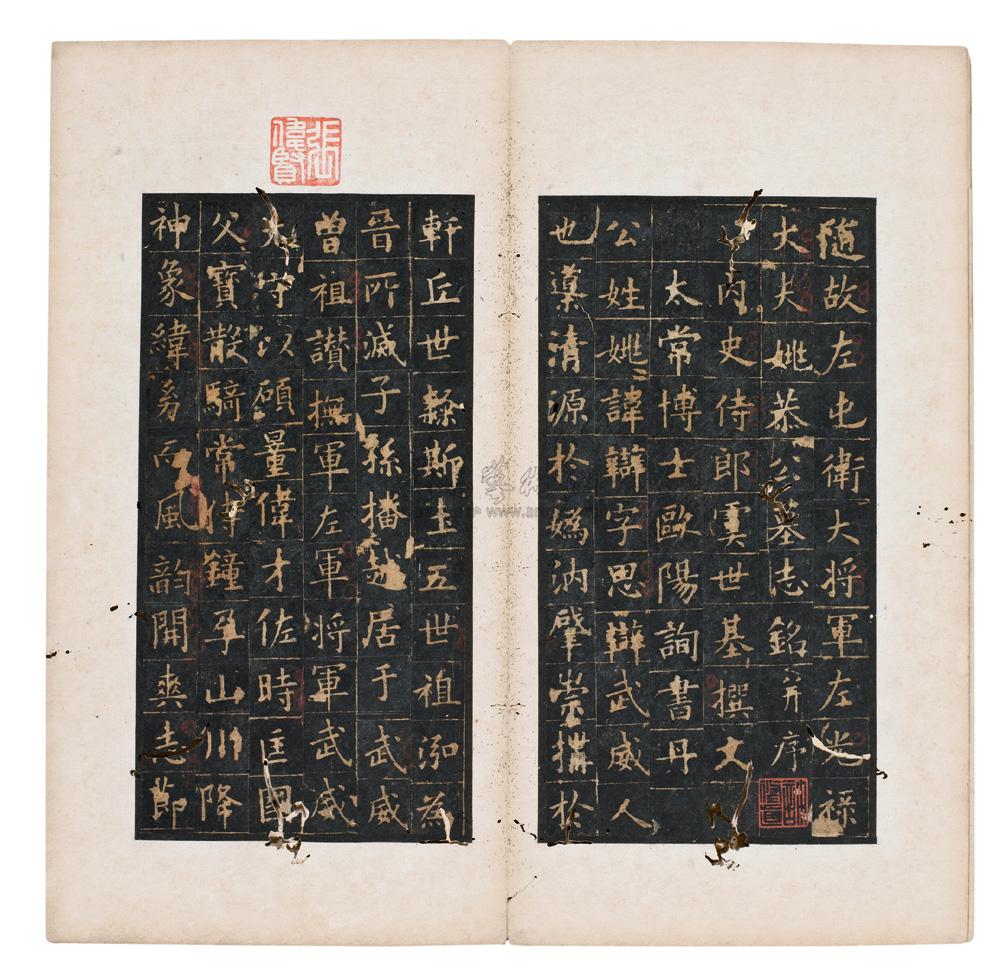 隨故左屯衛大將軍左光祿
大夫姚恭公墓志銘并序
內史侍郎虞世基撰文
太常博士歐陽詢書丹
公姓姚諱辯字思辯武威人
也導清源於媯汭肇崇搆於
軒丘世斯土五世祖泓為
晉所滅子孫播越居于武威
曾祖讚撫軍左軍將軍武威
太守以碩量偉才佐時匡國
父寶散騎常侍鐘孕山川降
神象緯而風韵開爽志節